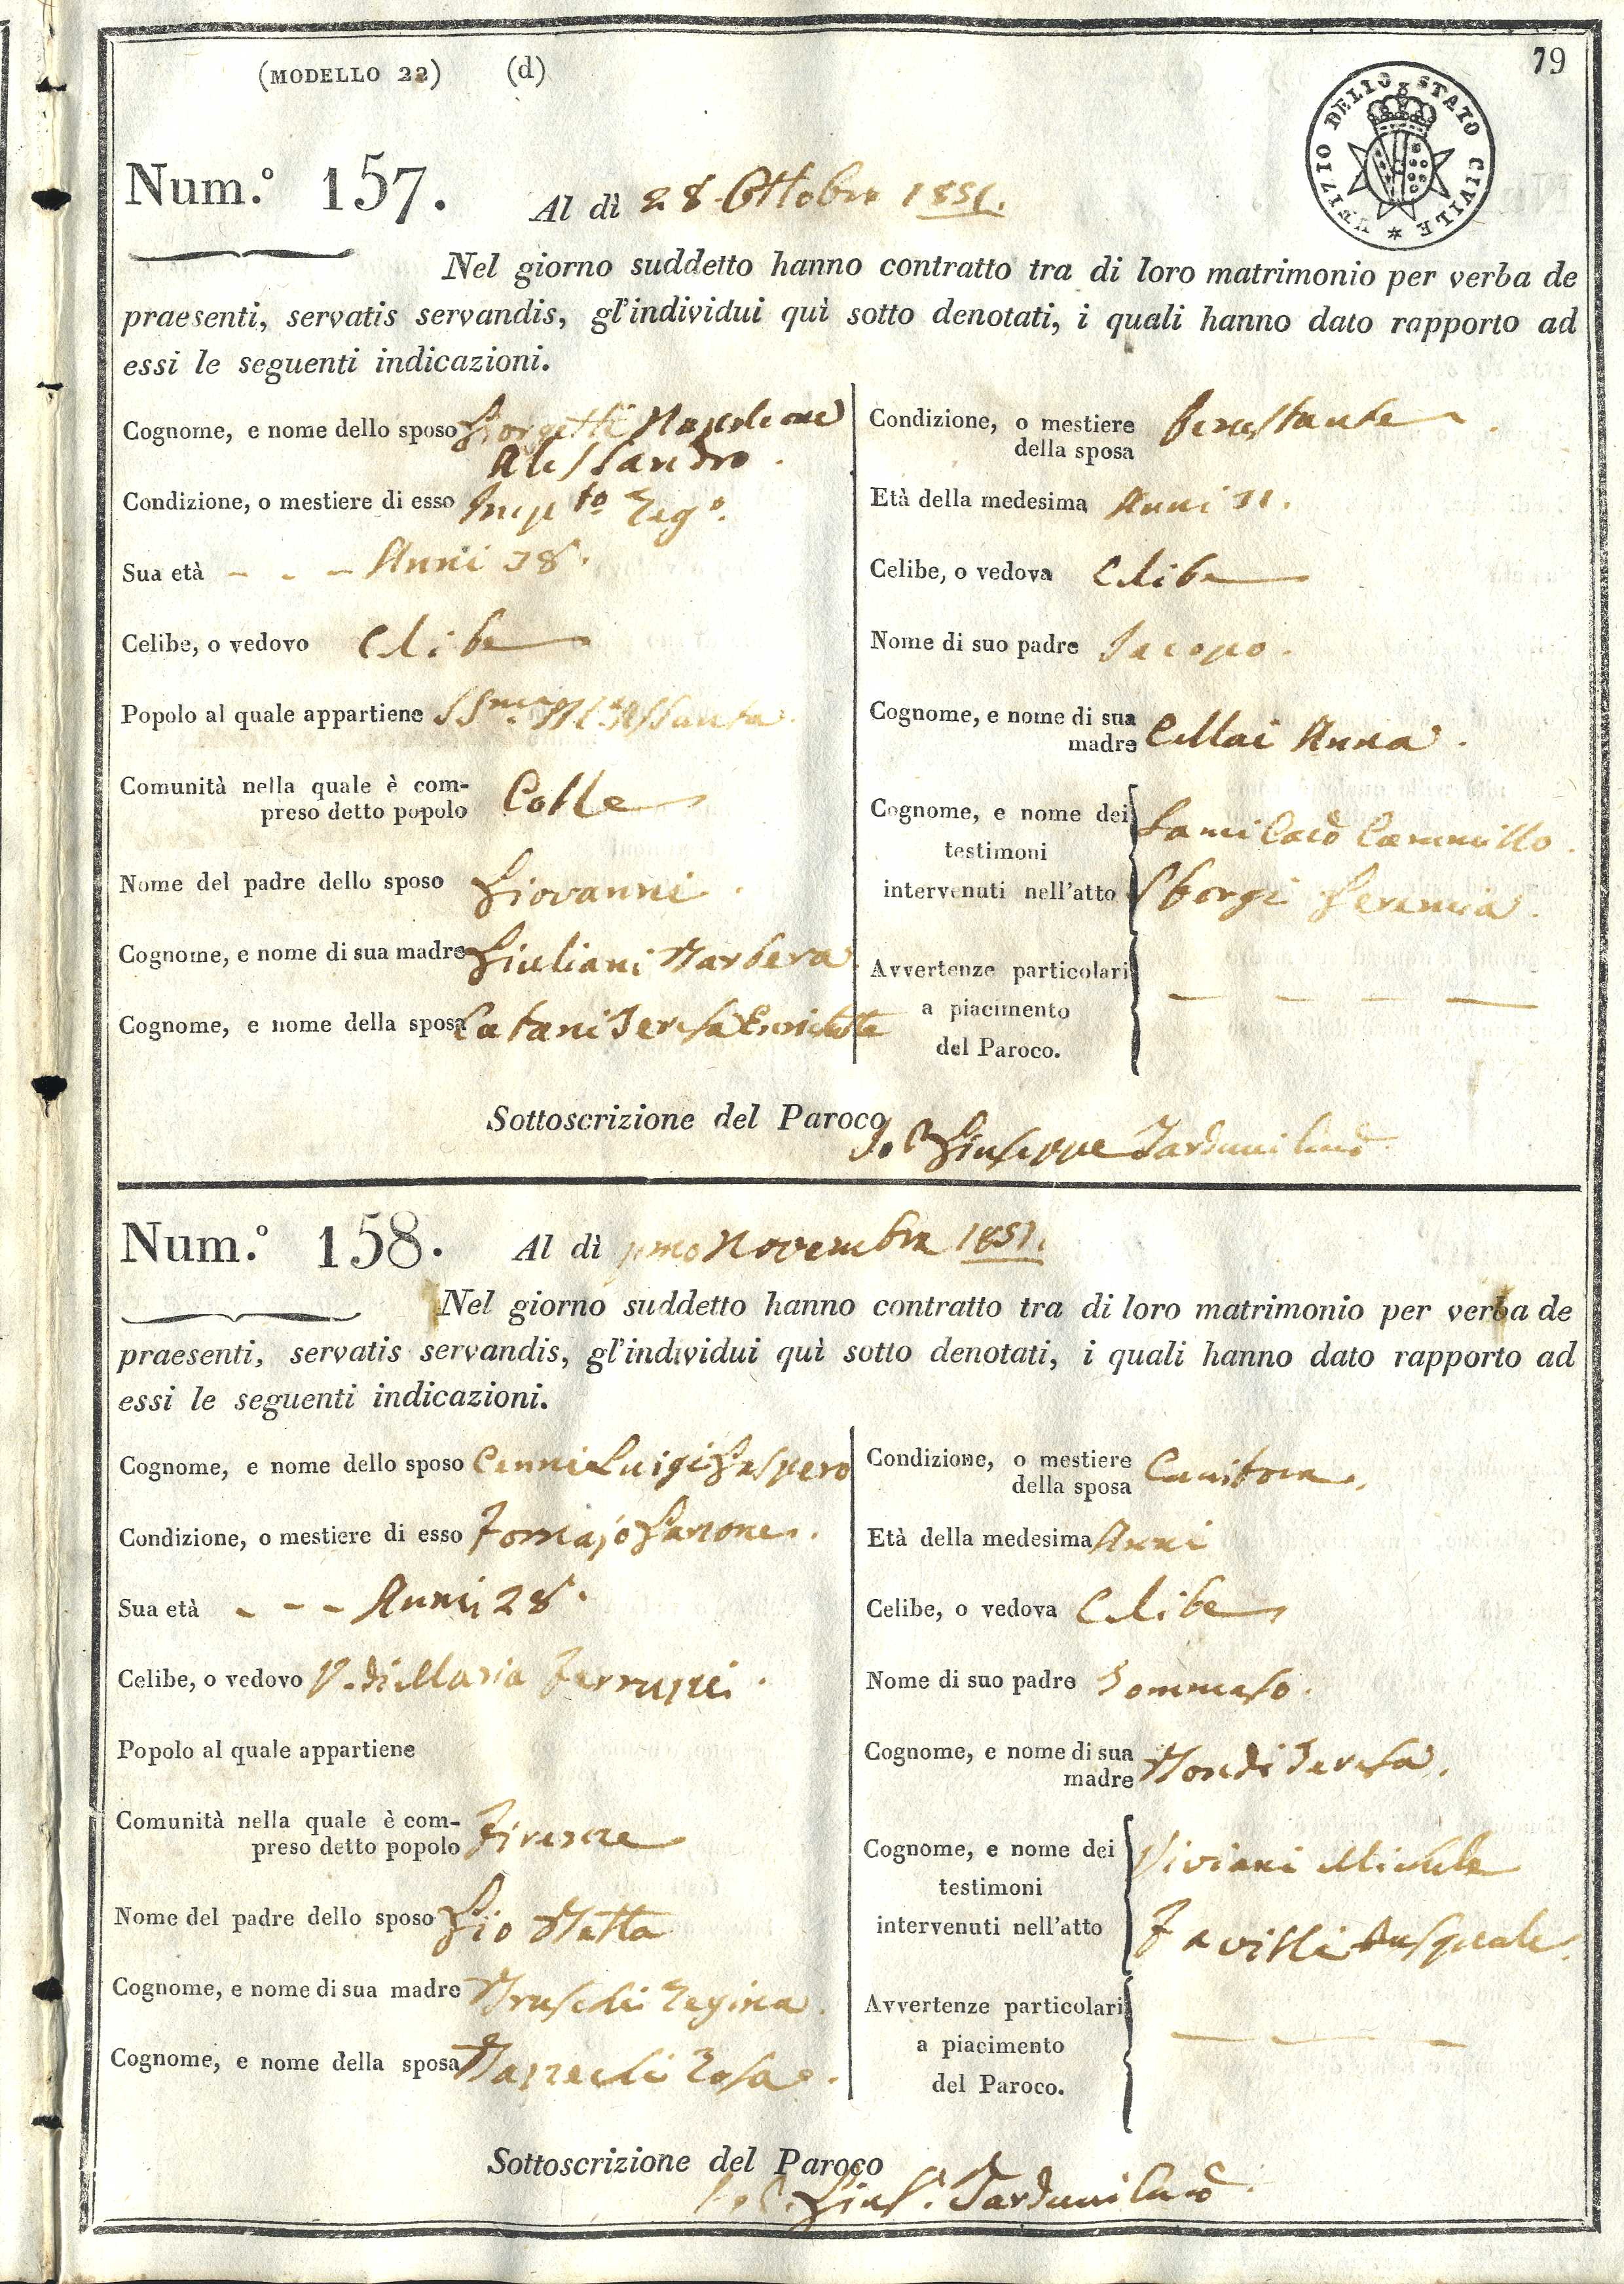 (MODELLO 22) (d)
79
UFIZIO DELLO STATO CIVILE *
Num.º 157. Al dì 28 Ottobre 1851.
Nel giorno suddetto hanno contratto tra di loro matrimonio per verba de
praesenti, servatis servandis, gl'individui quì sotto denotati, i quali hanno dato rapporto ad
essi le seguenti indicazioni.
Cognome, e nome dello sposo Giorgetti Napoleone
Alessandro.
Condizione, o mestiere di esso Imp.to Reg.º
Sua età - - - Anni 38.
Celibe, o vedovo Celibe
Popolo al quale appartiene Assunta
Comunità nella quale è com-
preso detto popolo Colle
Nome del padre dello sposo Giovanni.
Cognome, e nome di sua madre Giuliani Barbera
Cognome, e nome della sposa Catani Teresa Enrichetta
Condizione, o mestiere
della sposa Benestante.
Età della medesima Anni 31.
Celibe, o vedova Celibe
Nome di suo padre Jacopo.
Cognome, e nome di sua
madre Cellai Anna.
Cognome, e nome dei
testimoni
intervenuti nell'atto
Cammillo.
Sborgi Geremia.
Avvertenze particolari
a piacimento
del Paroco.
Sottoscrizione del Paroco
Giuseppe Tarduni
Num.º 158. Al dì pmo Novembre 1851.
Nel giorno suddetto hanno contratto tra di loro matrimonio per verba de
praesenti, servatis servandis, gl'individui quì sotto denotati, i quali hanno dato rapporto ad
essi le seguenti indicazioni.
Cognome, e nome dello sposo Cenni Luigi Gaspero
Condizione, o mestiere di esso Fornajo Garzone.
Sua età - - - Anni 28.
Celibe, o vedovo V. di Maria Ferruzzi.
Popolo al quale appartiene
Comunità nella quale è com-
preso detto popolo Firenze
Nome del padre dello sposo Gio Batta
Cognome, e nome di sua madre Bruschi Regina.
Cognome, e nome della sposa Rosa.
Condizione, o mestiere
della sposa Cucitora.
Età della medesima Anni
Celibe, o vedova Celibe
Nome di suo padre Tommaso.
Cognome, e nome di sua
madre Bondi Teresa.
Cognome, e nome dei
testimoni
intervenuti nell'atto
Viviani Michele
Favilli Pasquale.
Avvertenze particolari
a piacimento
del Paroco.
Sottoscrizione del Paroco
Gius. Tarduni